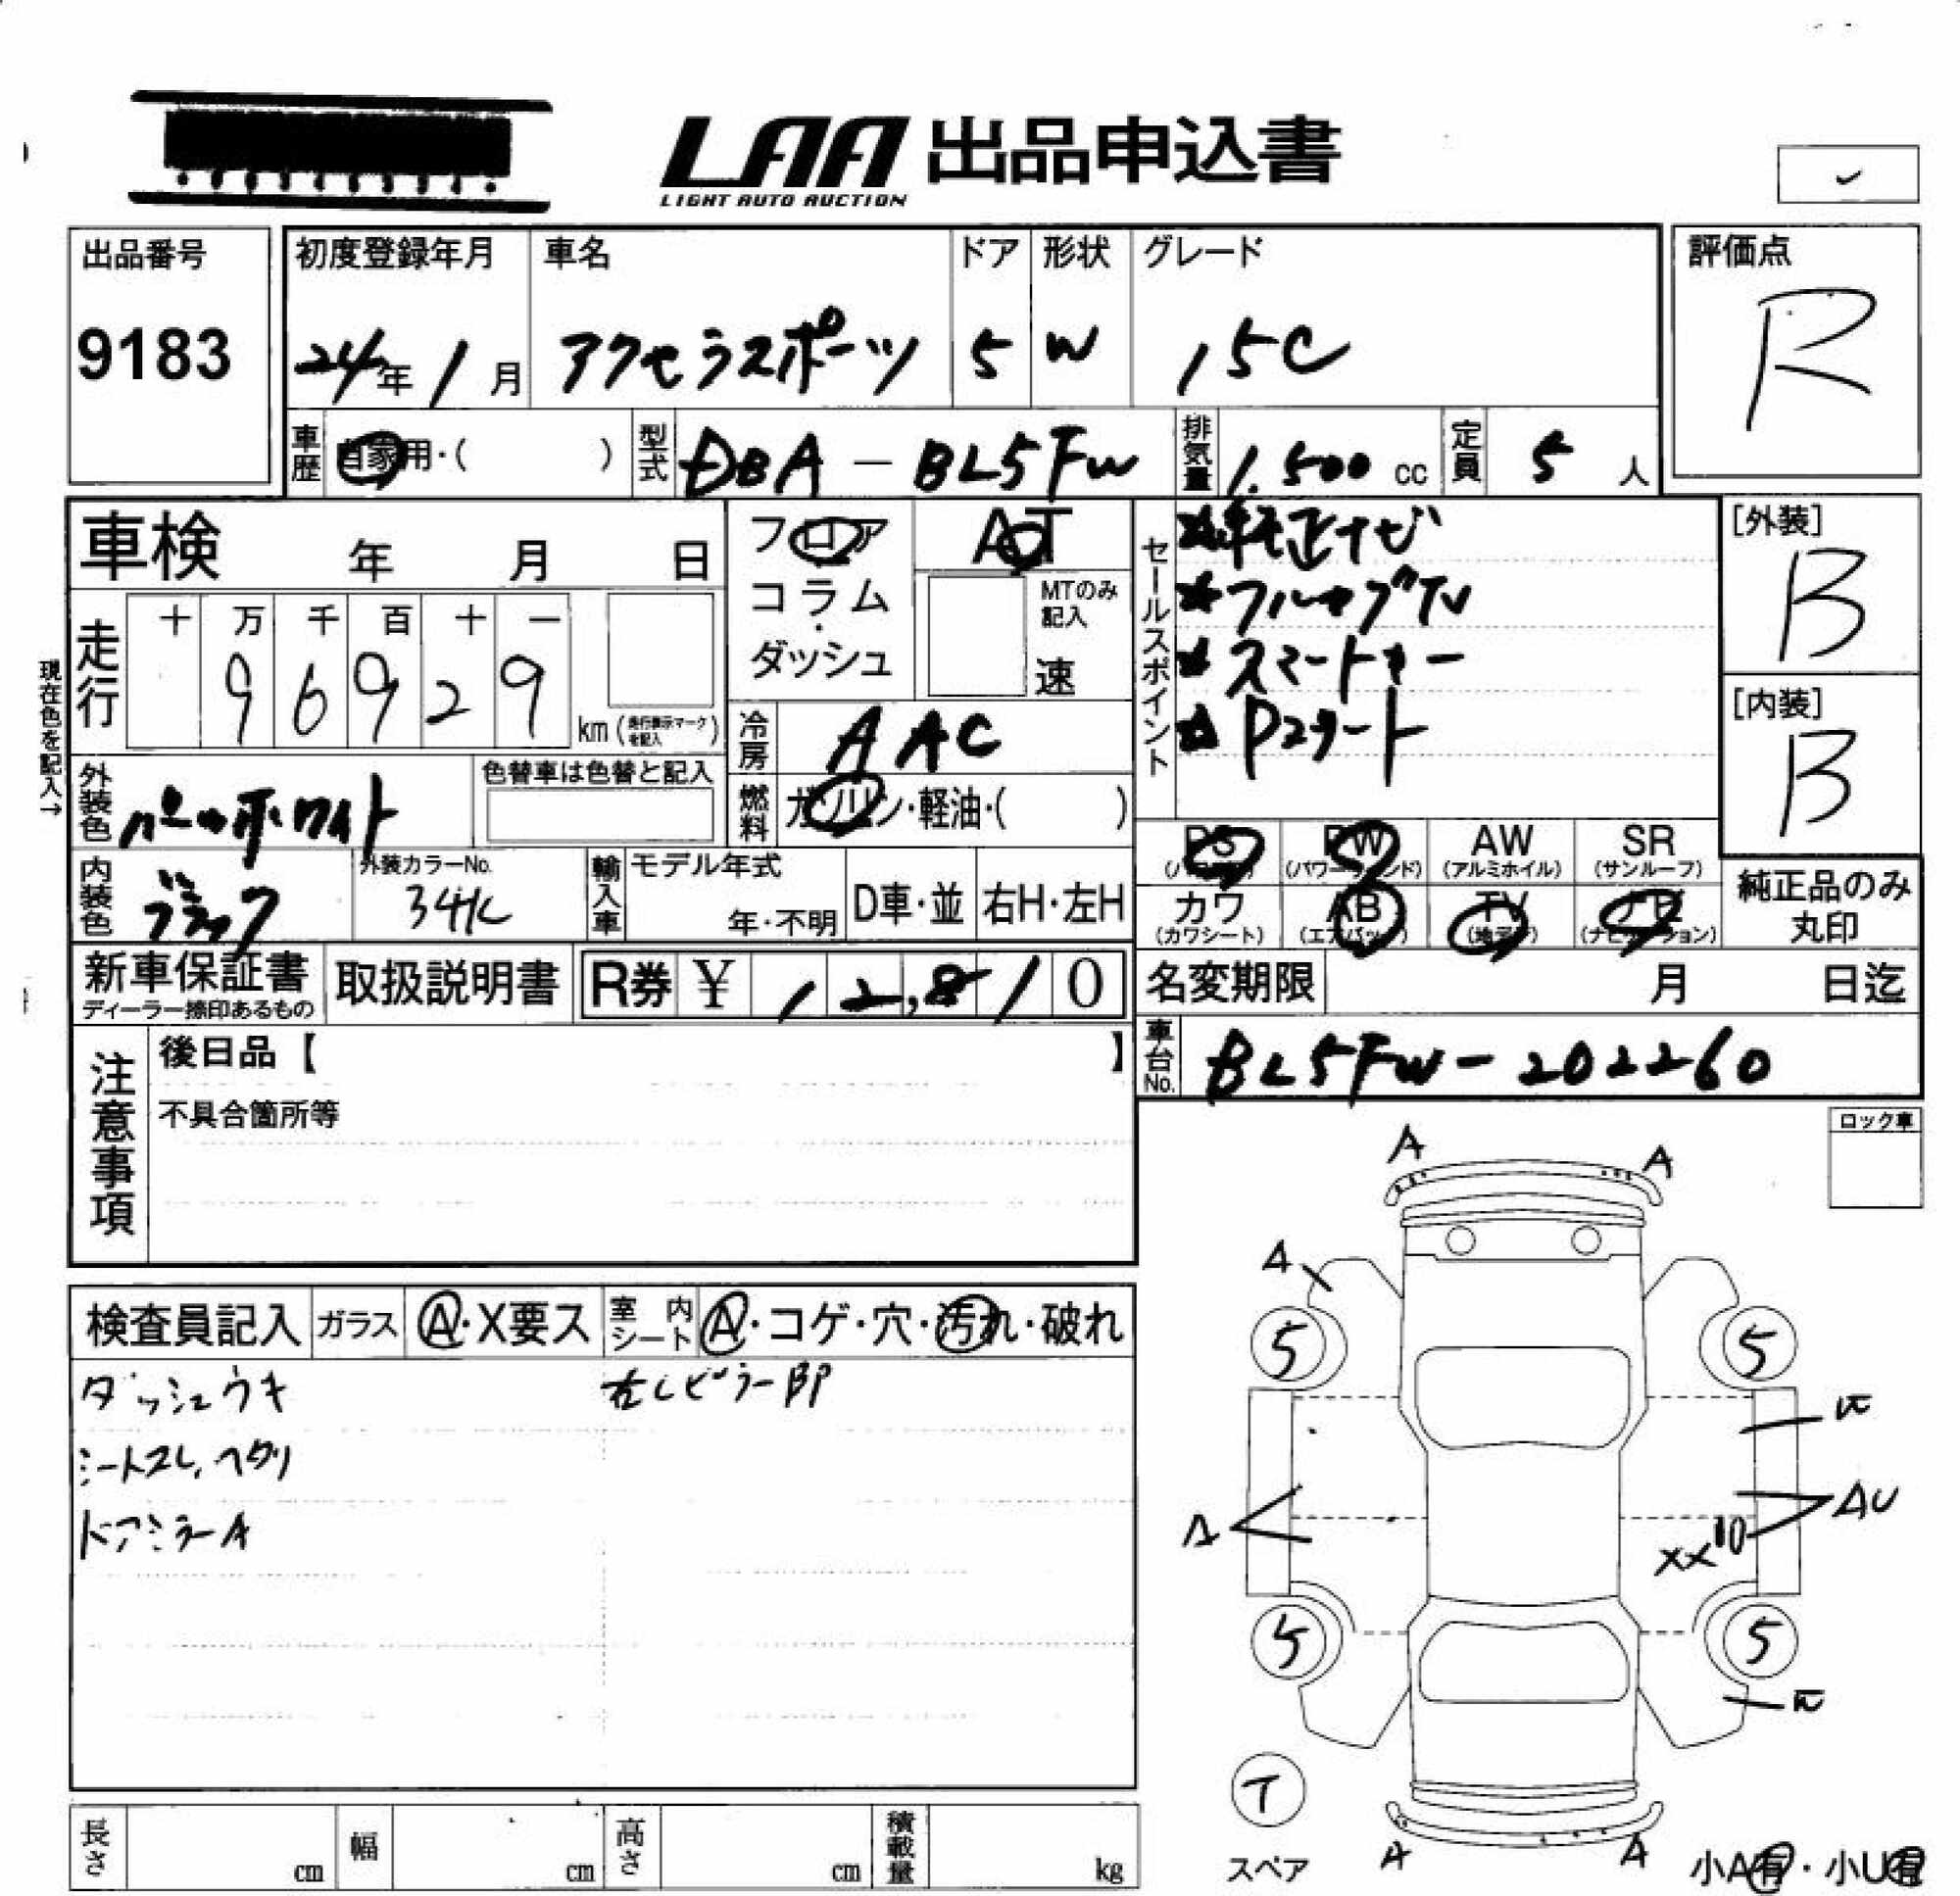 LAA 出品申込書
LIGHT AUTO AUCTION
出品番号
9183
初度登録年月
24年 1月
車名
アクセラスポーツ
ドア
5
形状
W
グレード
15C
評価点
R
車歴 自家用・( )
型式 DBA-BL5FW
排気量 1,500 cc
定員 5 人
車検 年 月 日
フロア
コラム
・
ダッシュ
AT
MTのみ
記入
速
セールスポイント
★純正ナビ
★フルセグTV
★スマートキー
★Pスタート
[外装]
B
[内装]
B
現在色を記入→
走行
十 万 千 百 十 一
9 6 9 2 9
km (走行表示マークを記入)
冷房 AAC
燃料 ガソリン・軽油・( )
外装色 パールホワイト
色替車は色替と記入
内装色 ブラック
外装カラーNo.
34K
輸入車
モデル年式
年・不明
D車・並
右H・左H
PS PW AW SR
(パワーウィンド) (アルミホイル) (サンルーフ)
カワ AB TV ナビ
(カワシート) (エアバッグ) (地デジ) (ナビゲーション)
純正品のみ
丸印
新車保証書
ディーラー捺印あるもの
取扱説明書
R券 ¥ 12,810
名変期限 月 日迄
車台No. BL5FW-202260
注意事項
後日品【 】
不具合箇所等
ロック車
検査員記入 ガラス A・X要ス 室内シート A・コゲ・穴・汚れ・破れ
ダッシュウキ
シートスレ、ヘタリ
ドアミラーA
右Cピラー BP
A A
A
5 5
A AU
XX 10
5 5
T
スペア
A A
小A有・小U有
長さ cm 幅 cm 高さ cm 積載量 kg